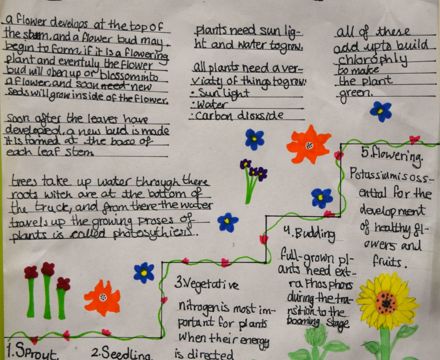 a flower develops at the top of
the stem, and a flower bud may
begin to form. if it is a flowering
plant and eventuly the flower
bud will open up or blossom into
a flower, and soon need new
seds will grow inside of the flower.
Soon after the leaves have
developed, a new bud is made
it is fomed at the base of
each leaf stem
trees take up water through there
roots witch are at the bottom of
the truck, and from there the water
travels up the growing proses of
plants is called photosythiers.
plants need sun lig-
ht and water to grow.
all plants need a ver-
viaty of things to grow:
• Sun light
• Water
• Carbon dioxside
all of these
add up to build
chlorophly
to make
the plant
green.
1. Sprout
2. Seedling
3. Vegetative
nitrogen is most im-
portant for plants
when their energy
is directed
4. Budding
full-grown pl-
ants need ext-
ra phosphors
during the tra-
nsition to the
booming stage
5. flowering.
Potassium is oss-
ential for the
development
of healthy fl-
owers and
fruits.